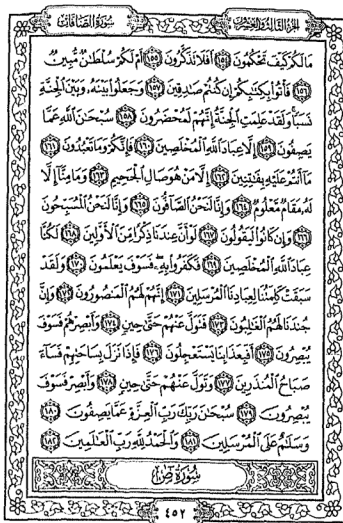 سورة الصافات الجزء الثالث والعشرون
ما لكم كيف تحكمون ١٥٤ أفلا تذكرون ١٥٥ أم لكم سلطان مبين
١٥٦ فأتوا بكتابكم إن كنتم صادقين ١٥٧ وجعلوا بينه وبين الجنة
نسبا ولقد علمت الجنة إنهم لمحضرون ١٥٨ سبحان الله عما
يصفون ١٥٩ إلا عباد الله المخلصين ١٦٠ فإنكم وما تعبدون ١٦١
ما أنتم عليه بفاتنين ١٦٢ إلا من هو صال الجحيم ١٦٣ وما منا إلا
له مقام معلوم ١٦٤ وإنا لنحن الصافون ١٦٥ وإنا لنحن المسبحون
١٦٦ وإن كانوا ليقولون ١٦٧ لو أن عندنا ذكرا من الأولين ١٦٨ لكنا
عباد الله المخلصين ١٦٩ فكفروا به فسوف يعلمون ١٧٠ ولقد
سبقت كلمتنا لعبادنا المرسلين ١٧١ إنهم لهم المنصورون ١٧٢ وإن
جندنا لهم الغالبون ١٧٣ فتول عنهم حتى حين ١٧٤ وأبصرهم فسوف
يبصرون ١٧٥ أفبعذابنا يستعجلون ١٧٦ فإذا نزل بساحتهم فساء
صباح المنذرين ١٧٧ وتول عنهم حتى حين ١٧٨ وأبصر فسوف
يبصرون ١٧٩ سبحان ربك رب العزة عما يصفون ١٨٠
وسلام على المرسلين ١٨١ والحمد لله رب العالمين ١٨٢
سورة ص
٤٥٢